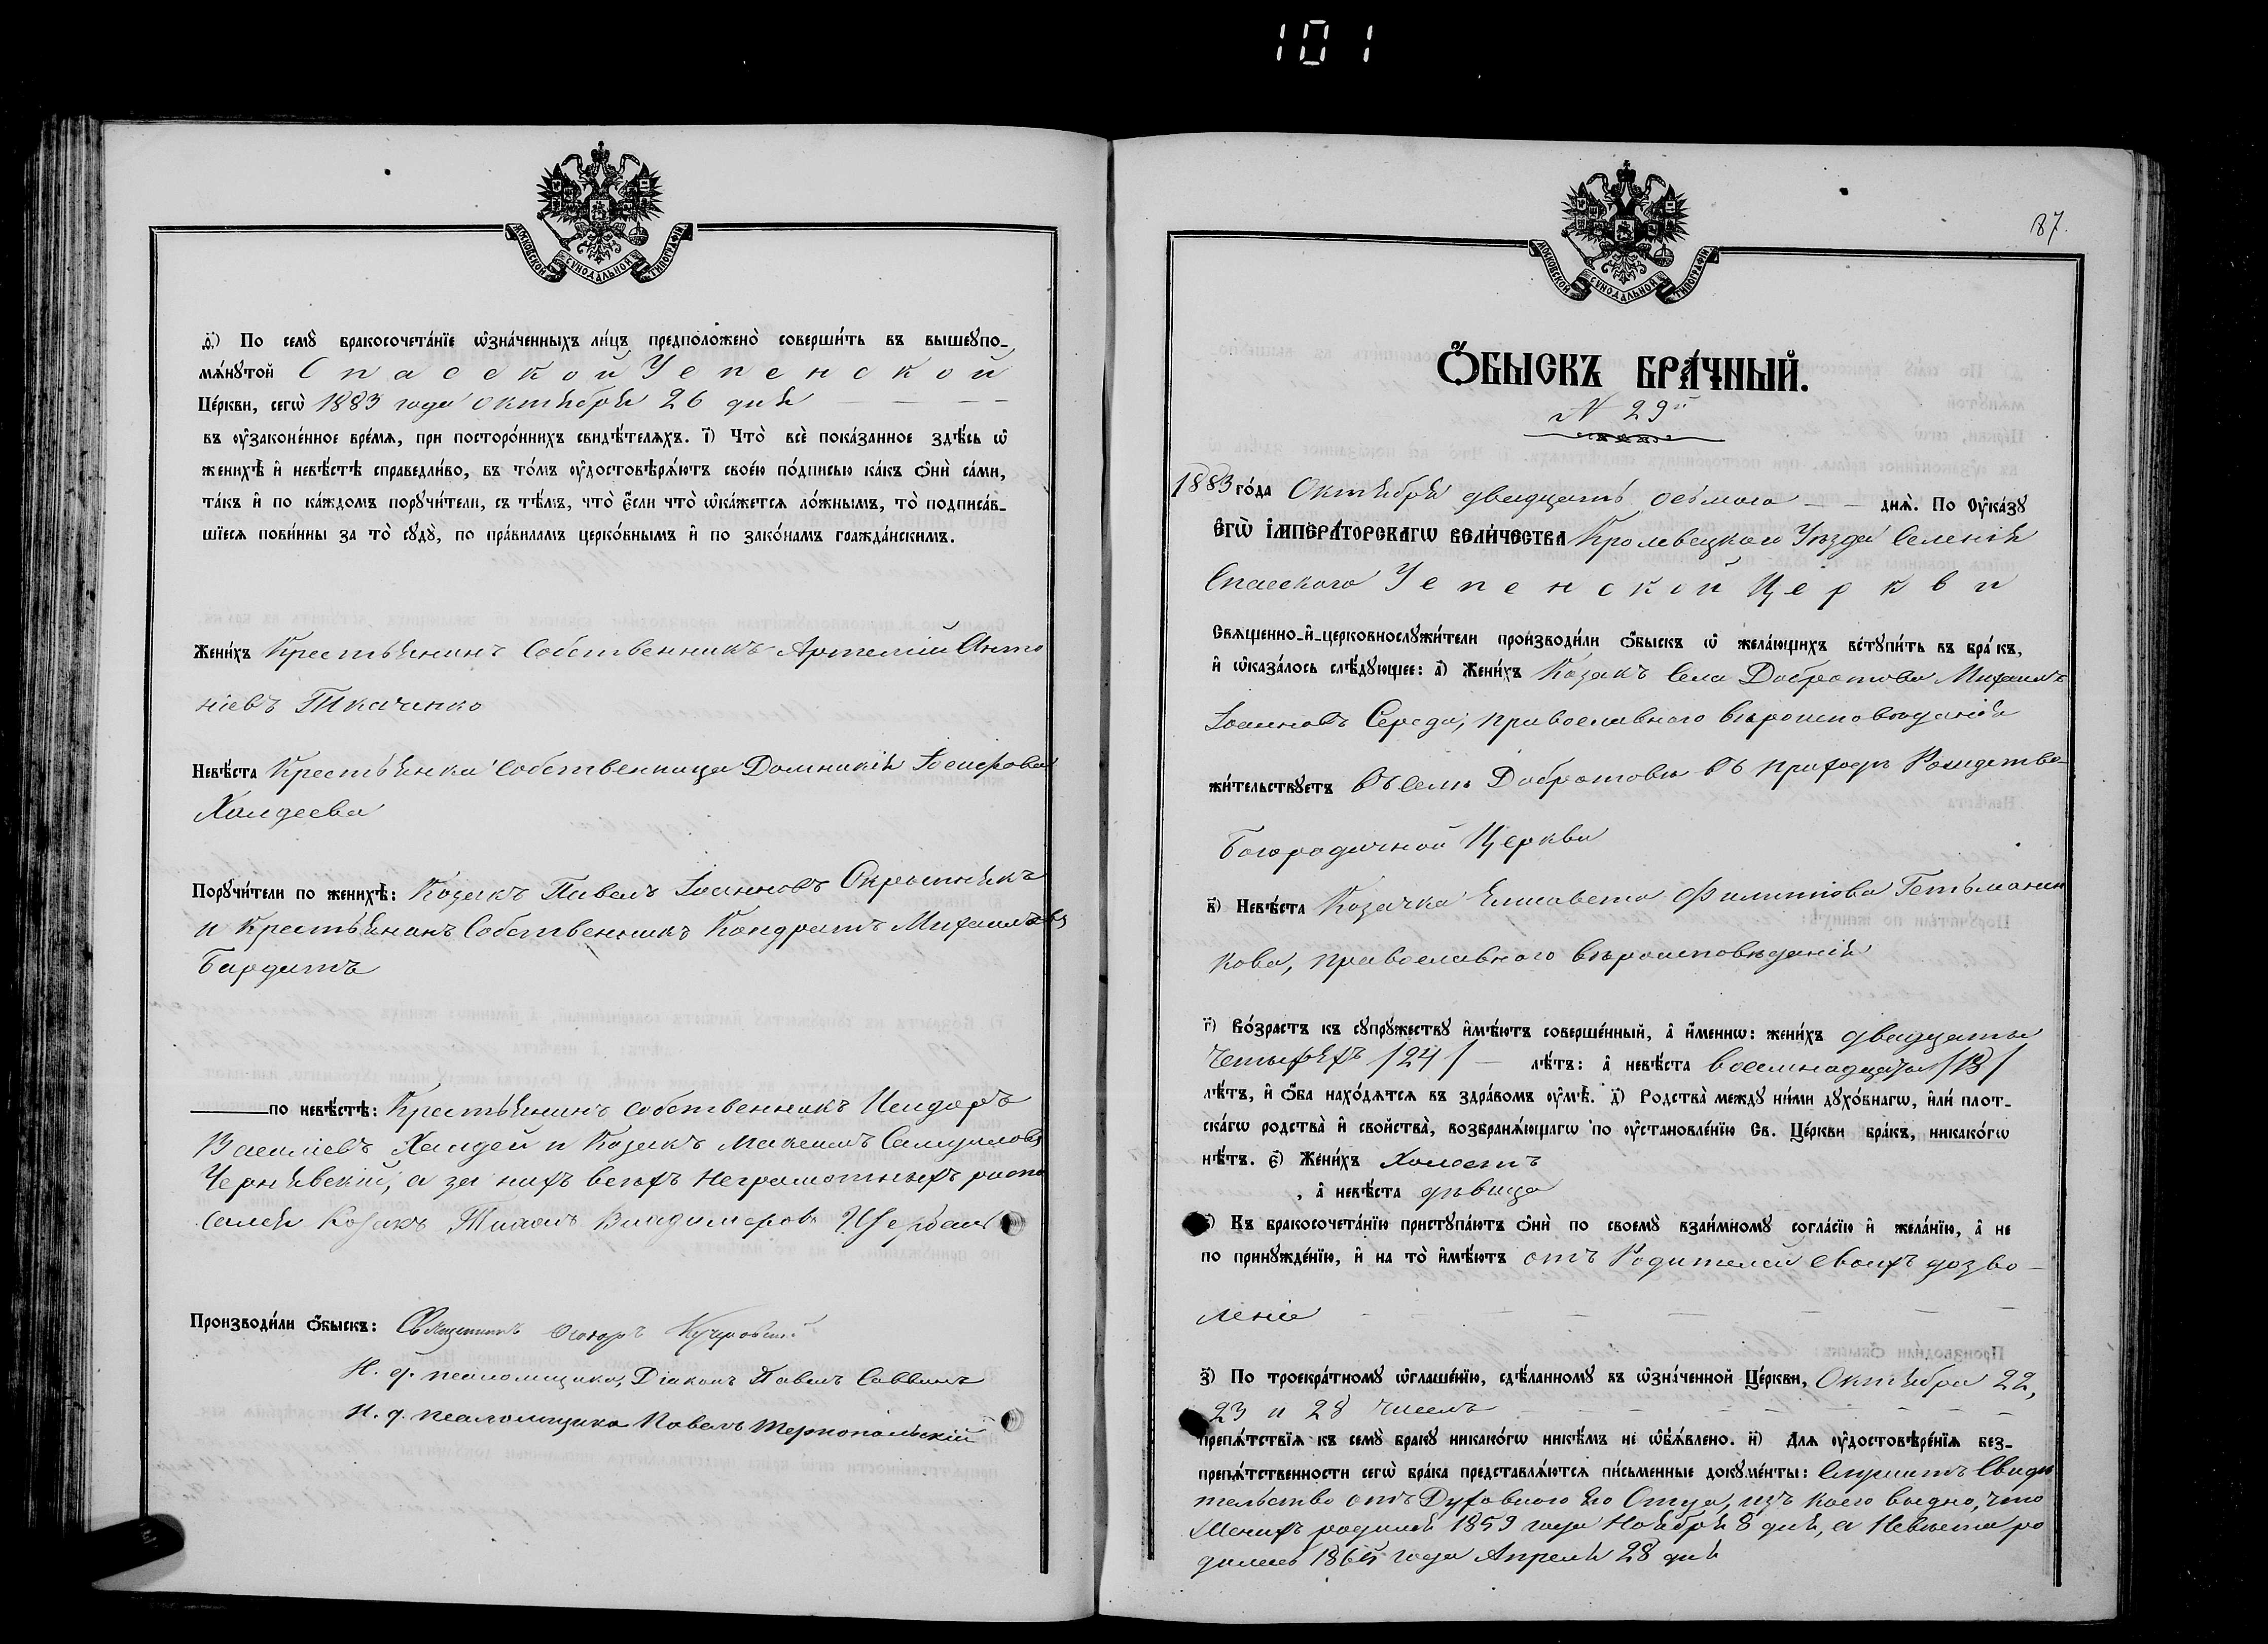 101
МОСКОВСКОЙ СѴНОДАЛЬНОЙ ТИПОГРАФІИ
ѳ҃) По семꙋ̀ бракосочета́нїе ѡ҆зна́ченныхъ ли́цъ предположено̀ соверши́ть въ вышеꙋпо-
мѧ́нꙋтой Спасской Успенской
Це́ркви, сегѡ̀ 1883 года Октября 26 дня — — — —
въ ᲂу҆зако́ненное вре́мѧ, при посторо́ннихъ свидѣ́телѧхъ. і҃) Что̀ всѐ пока́занное здѣ́сь ѡ҆
женихѣ̀ и҆ невѣ́стѣ справедли́во, въ то́мъ ᲂу҆достовѣрѧ́ютъ свое́ю по́дписью ка́къ ѻ҆нѝ са́ми,
та́къ и҆ по ка́ждомъ порꙋчи́тели, съ тѣ́мъ, что̀ є҆́сли что̀ ѡ҆ка́жетсѧ ло́жнымъ, то̀ подписа́в-
шїесѧ пови́нны за то̀ сꙋдꙋ̀, по пра́виламъ церко́внымъ и҆ по зако́намъ гражда́нскимъ.
Жени́хъ Крестьянинъ Собственникъ Артемій Анто
ніевъ Ткаченко
Невѣ́ста Крестьянка собственница Домникія Іосифова
Халдеева
Порꙋчи́тели по женихѣ̀: Козакъ Павелъ Іоанновъ Скрыпникъ
и Крестьянинъ Собственникъ Кондратъ Михаиловъ
Бардатъ
по невѣ́стѣ: Крестьянинъ собственникъ Исидоръ
Василіевъ Халдей и Козакъ Максимъ Самуиловъ
Чернявскій, а за нихъ всѣхъ неграмотныхъ распи
сался Козакъ Тихонъ Владимеровъ Щербакъ
Производи́ли ѻ҆́быскъ: Священникъ Ѳеодоръ
И. д. псаломщика, Діаконъ Павелъ Саввинъ
И. д. псаломщика Павелъ Тернопольскій
МОСКОВСКОЙ СѴНОДАЛЬНОЙ ТИПОГРАФІИ
87.
Ѻ҆́БЫСКЪ БРА́ЧНЫЙ.
N 29й
1883 го́да Октября двадцать осьмого — — днѧ̀. По ᲂу҆ка́зꙋ
є҆гѡ̀ і҆мпера́торскагѡ вели́чества Кролевецкого Уѣзда Селенія
Спасского Успенской Церкви
Свѧще́нно-и҆-церковнослꙋжи́тели производи́ли ѻ҆́быскъ ѡ҆ жела́ющихъ встꙋпи́ть въ бра́къ,
и҆ ѡ҆каза́лось слѣ́дꙋющее: а҃) Жени́хъ Козакъ Села Добротова Михаилъ
Іоанновъ Середа, православного вѣроисповѣданія
жи́тельствꙋетъ въ селѣ Добротовѣ въ приходѣ Рождество-
Богородичной Церкви
в҃) Невѣ́ста Козачка Елисавета Филиппова Гетьманен
кова, православного вѣроисповѣданія
г҃) Во́зрастъ къ сꙋпрꙋ́жествꙋ и҆мѣ́ютъ соверше́нный, а҆ и҆́меннѡ: жени́хъ двадцаты
четырехъ /24/ — лѣ́тъ: а҆ невѣ́ста восемнадцать /18/
лѣ́тъ, и҆ ѻ҆́ба нахо́дѧтсѧ въ здра́вомъ ᲂу҆мѣ̀. д҃) Родства̀ междꙋ ни́ми дꙋхо́внагѡ, и҆лѝ плот-
ска́гѡ родства̀ и҆ свойства̀, возбранѧ́ющагѡ по ᲂу҆становле́нїю Св. Це́ркви бра́къ, никако́гѡ
нѣ́тъ. є҃) Жени́хъ Холостъ
, а҆ невѣ́ста дѣвица
) Къ бракосочета́нїю пристꙋпа́ютъ ѻ҆нѝ по своемꙋ̀ взаи́мномꙋ согла́сїю и҆ жела́нїю, а҆ не
по принꙋжде́нїю, и҆ на то̀ и҆мѣ́ютъ отъ Родителей своихъ дозво-
леніе — — — — — — — —
з҃) По троекра́тномꙋ ѡ҆глаше́нїю, сдѣ́ланномꙋ въ ѡ҆зна́ченной Це́ркви, Октября 22,
23 и 28 чиселъ — — — — — —
препѧ́тствїѧ къ семꙋ̀ бракꙋ никако́гѡ никѣ́мъ не ѡ҆б̾ѧ́влено. и҃) Длѧ ᲂу҆достовѣре́нїѧ без-
препѧ́тственности сегѡ̀ бра́ка представлѧ́ютсѧ пи́сьменные докꙋме́нты: Служитъ Свидѣ
тельство отъ Духовного его Отца, изъ коего видно, что
Женихъ родился 1859 года Ноября 8 дня, а Невѣста ро
дилась года Апреля 28 дня